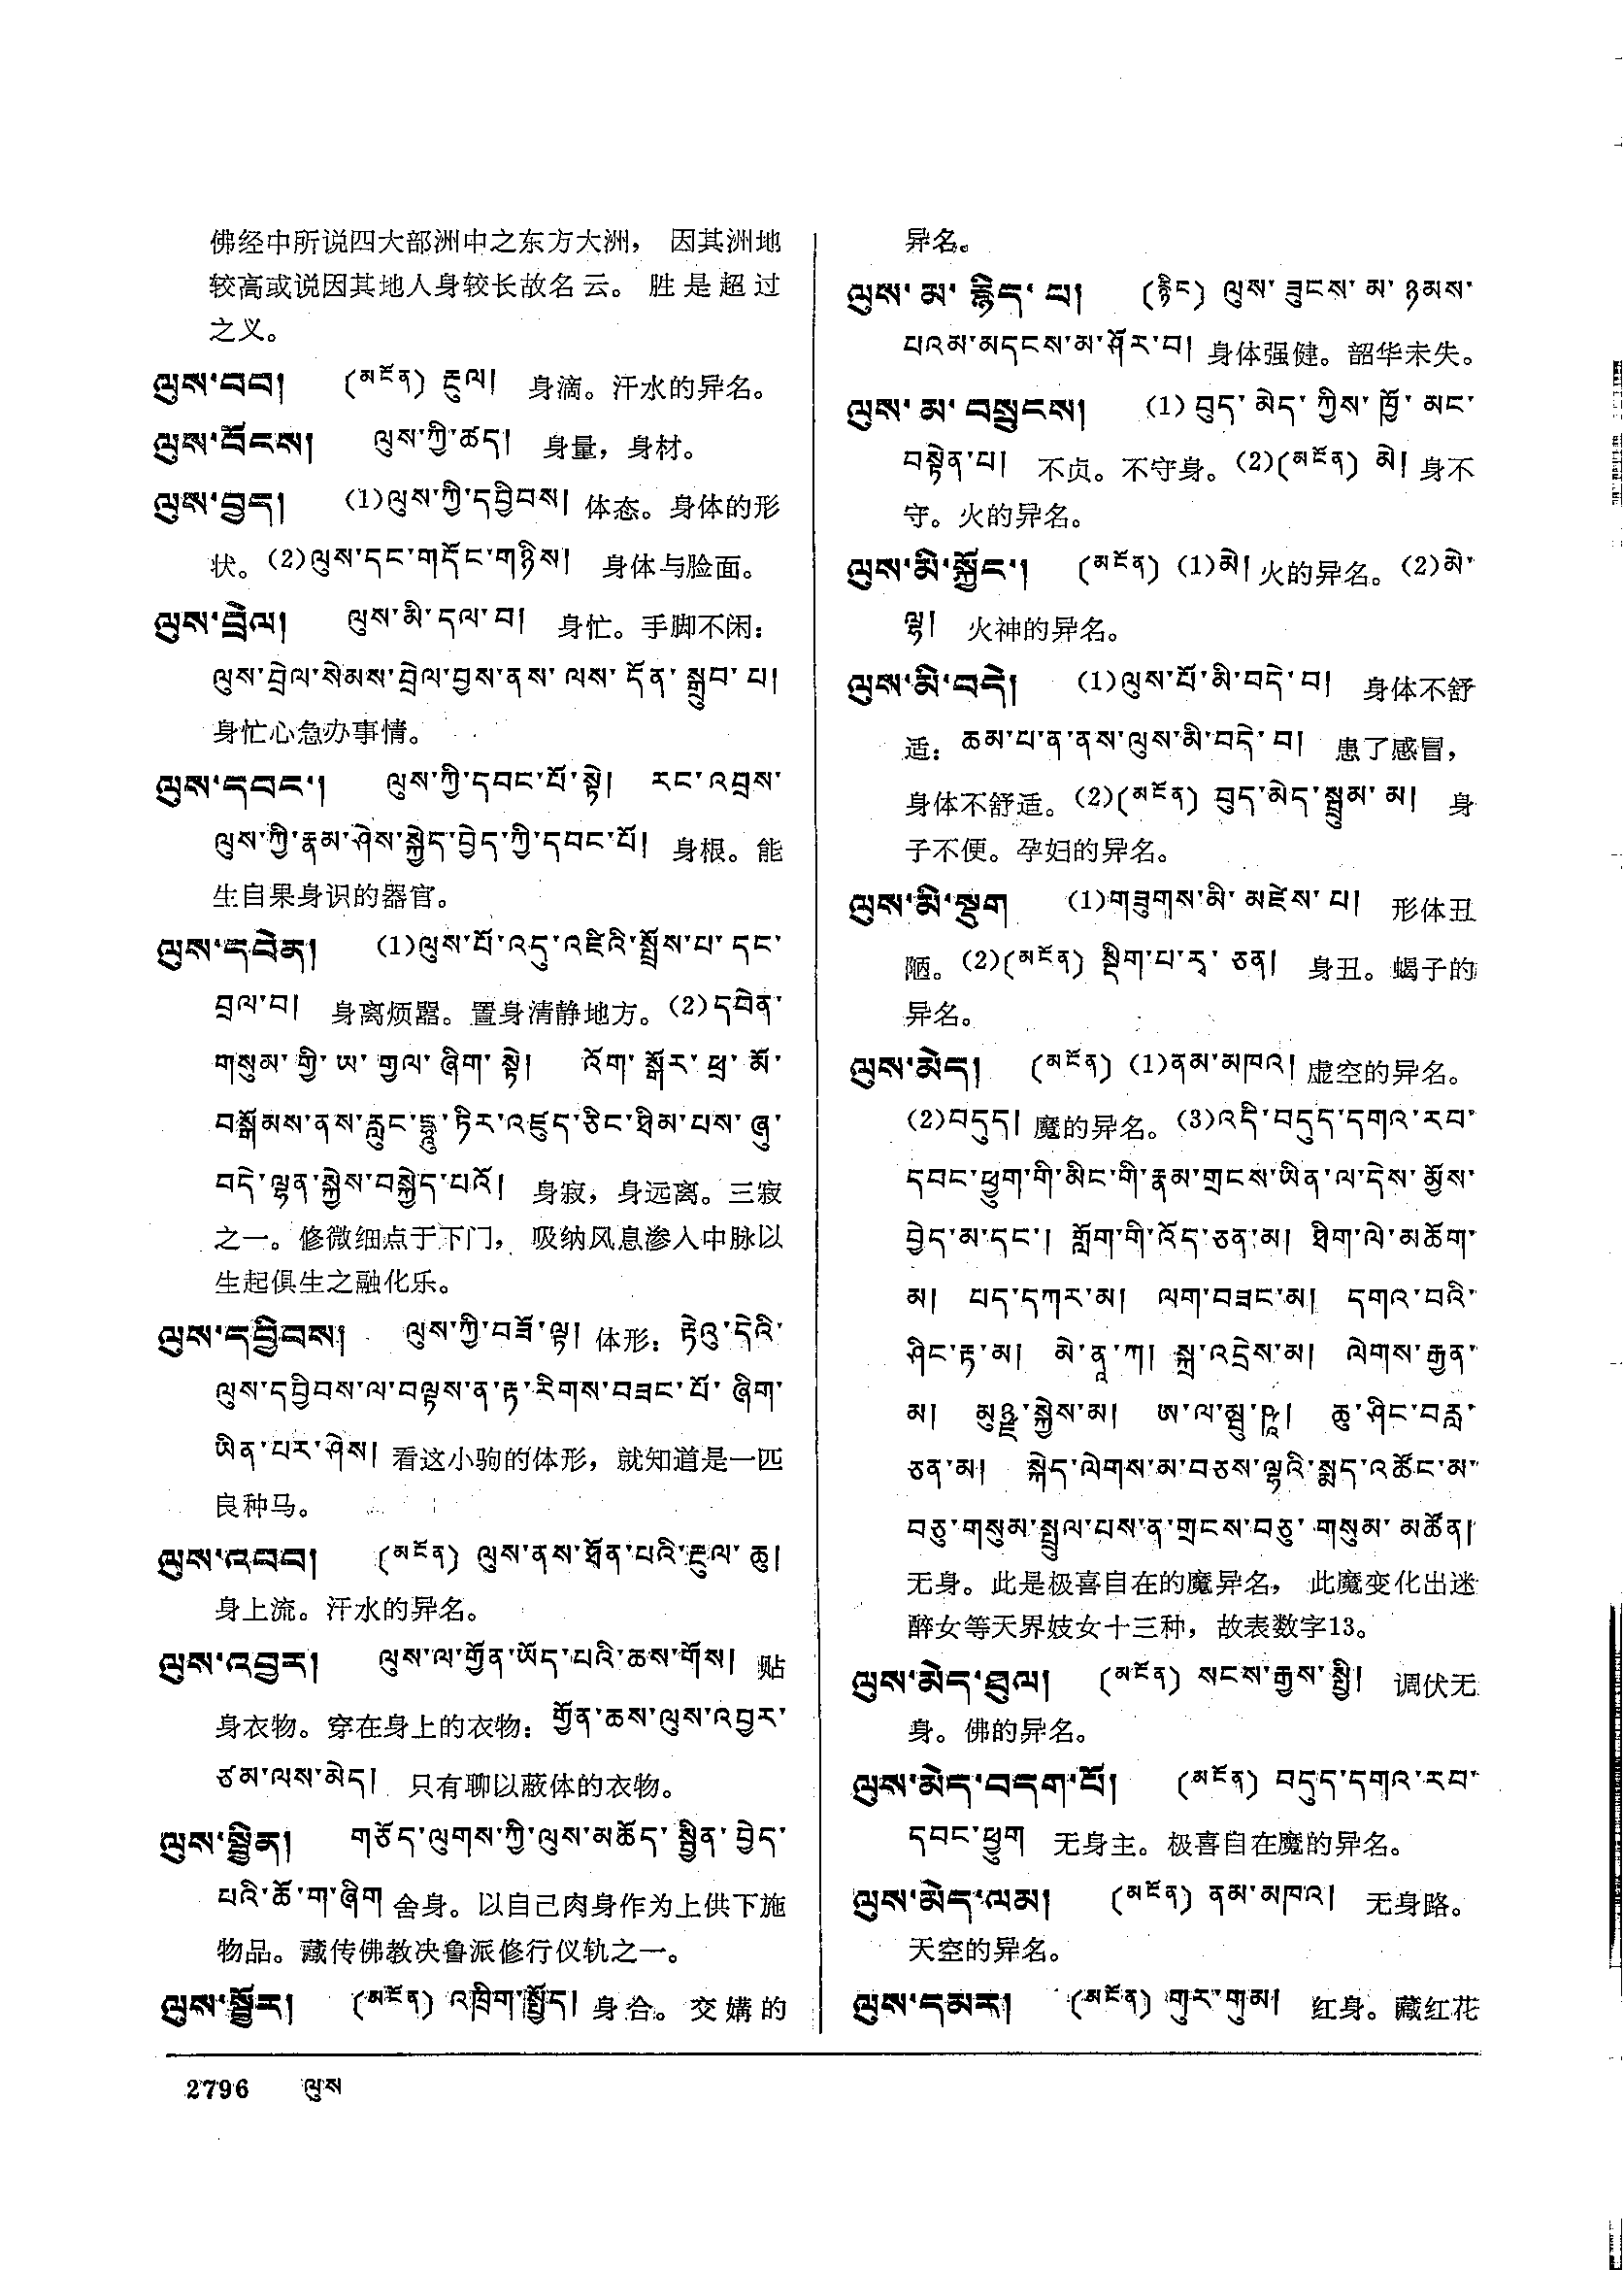 佛经中所说四大部洲中之东方大洲， 因其洲地
较高或说因其地人身较长故名云。胜是超过
之义。
ལུས་བབ། (མངོན) རྔུལ། 身滴。汗水的异名。
ལུས་བོངས། ལུས་ཀྱི་ཚད། 身量，身材。
ལུས་བྱད། (1)ལུས་ཀྱི་དབྱིབས། 体态。身体的形
状。(2)ལུས་དང་གདོང་གཉིས། 身体与脸面。
ལུས་བྲེལ། ལུས་མི་དལ་བ། 身忙。手脚不闲：
ལུས་བྲེལ་སེམས་བྲེལ་བྱས་ནས་ལས་དོན་སྒྲུབ་པ།
身忙心急办事情。
ལུས་དབང་། ལུས་ཀྱི་དབང་པོ་སྟེ། རང་འབྲས་
ལུས་ཀྱི་རྣམ་ཤེས་སྐྱེད་བྱེད་ཀྱི་དབང་པོ། 身根。能
生自果身识的器官。
ལུས་དབེན། (1)ལུས་པོ་འདུ་འཛིའི་སྤྲོས་པ་དང་
བྲལ་བ། 身离烦嚣。置身清静地方。(2)དབེན་
གསུམ་གྱི་ཡ་གྱལ་ཞིག་སྟེ། འོག་སྒོར་ཕྲ་མོ་
བསྒོམས་ནས་རླུང་དྷཱུ་ཏིར་འཛུད་ཅིང་ཐིམ་པས་ཞུ་
བདེ་ལྷན་སྐྱེས་བསྐྱེད་པའོ། 身寂，身远离。三寂
之一。修微细点于下门， 吸纳风息渗入中脉以
生起俱生之融化乐。
ལུས་དབྱིབས། ལུས་ཀྱི་བཟོ་ལྟ། 体形：རྟེའུ་དེའི་
ལུས་དབྱིབས་ལ་བལྟས་ན་རྟ་རིགས་བཟང་པོ་ཞིག་
ཡིན་པར་ཤེས། 看这小驹的体形，就知道是一匹
良种马。
ལུས་འབབ། (མངོན) ལུས་ནས་ཐོན་པའི་རྔུལ་ཆུ།
身上流。汗水的异名。
ལུས་འབྱར། ལུས་ལ་གྱོན་ཡོད་པའི་ཆས་གོས། 贴
身衣物。穿在身上的衣物：གྱོན་ཆས་ལུས་འབྱར་
ཙམ་ལས་མེད། 只有聊以蔽体的衣物。
ལུས་སྦྱིན། གཅོད་ལུགས་ཀྱི་ལུས་མཆོད་སྦྱིན་བྱེད་
པའི་ཆོ་ག་ཞིག 舍身。以自己肉身作为上供下施
物品。藏传佛教决鲁派修行仪轨之一。
ལུས་སྦྱོར། (མངོན) འཁྲིག་སྤྱོད། 身合。交媾的
异名。
ལུས་མ་རྙེད་པ། (རྙིང) ལུས་ཟུངས་མ་ཉམས་
པའམ་མདངས་མ་ཤོར་བ། 身体强健。韶华未失。
ལུས་མ་བསྲུངས། (1) བུད་མེད་ཀྱིས་ཁྱོ་མང་
བསྟེན་པ། 不贞。不守身。(2)(མངོན) མེ། 身不
守。火的异名。
ལུས་མི་སྐྱོང་། (མངོན) (1)མེ། 火的异名。(2)མེ་
ལྷ། 火神的异名。
ལུས་མི་བདེ། (1)ལུས་པོ་མི་བདེ་བ། 身体不舒
适：ཆམ་པ་ན་ནས་ལུས་མི་བདེ་བ། 患了感冒，
身体不舒适。(2)(མངོན) བུད་མེད་སྦྲུམ་མ། 身
子不便。孕妇的异名。
ལུས་མི་སྡུག (1)གཟུགས་མི་མཛེས་པ། 形体丑
陋。(2)(མངོན) སྡིག་པ་རྭ་ཅན། 身丑。蝎子的
异名。
ལུས་མེད། (མངོན) (1)ནམ་མཁའ། 虚空的异名。
(2)བདུད། 魔的异名。(3)འདི་བདུད་དགའ་རབ་
དབང་ཕྱུག་གི་མིང་གི་རྣམ་གྲངས་ཡིན་ལ་དེས་མྱོས་
བྱེད་མ་དང་། གློག་གི་འོད་ཅན་མ། ཐིག་ལེ་མཆོག་
མ། པད་དཀར་མ། ལག་བཟང་མ། དགའ་བའི་
ཤིང་རྟ་མ། མེ་ནཱ་ཀ། སྐྲ་འདྲེས་མ། ལེགས་རྒྱན་
མ། མུཉྫ་སྐྱེས་མ། ཨ་ལ་མྦུ་ཥཱ། ཆུ་ཤིང་བརླ་
ཅན་མ། སྐེད་ལེགས་མ་བཅས་ལྷའི་སྨད་འཚོང་མ་
བཅུ་གསུམ་སྤྲུལ་པས་ན་གྲངས་བཅུ་གསུམ་མཚོན།
无身。此是极喜自在的魔异名， 此魔变化出迷
醉女等天界妓女十三种，故表数字13。
ལུས་མེད་ཐུལ། (མངོན) སངས་རྒྱས་སྤྱི། 调伏无
身。佛的异名。
ལུས་མེད་བདག་པོ། (མངོན) བདུད་དགའ་རབ་
དབང་ཕྱུག 无身主。极喜自在魔的异名。
ལུས་མེད་ལམ། (མངོན) ནམ་མཁའ། 无身路。
天空的异名。
ལུས་དམར། (མངོན) གུར་གུམ། 红身。藏红花
2796 ལུས